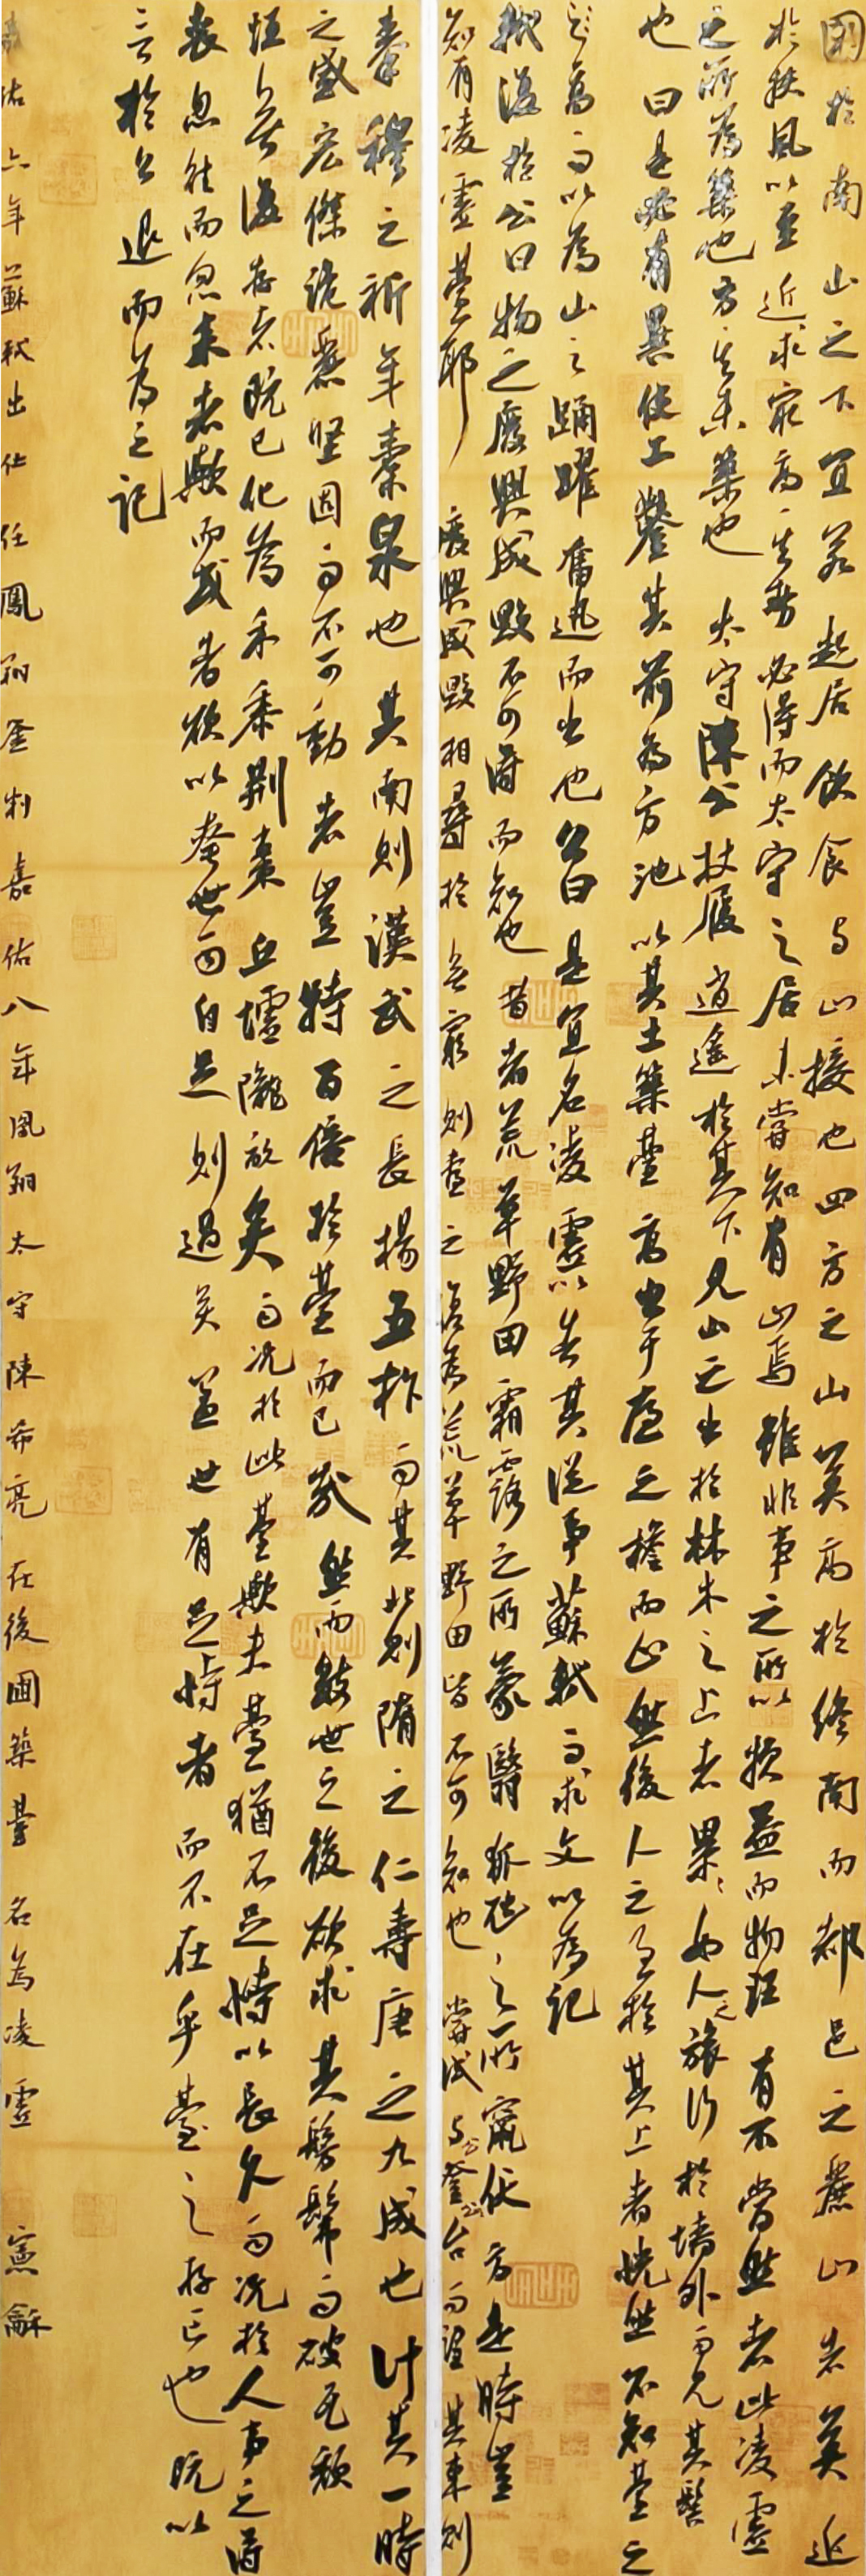 國於南山之下宜若起居飲食与山接也四方之山莫高於終南而都邑之麗山者莫近
於扶風以至近求最高其勢必得而太守之居未嘗知有山焉雖非事之所以損益而物理有不當然者此凌虛
之所為築也方其未築也太守陳公杖履逍遙於其下見山之出於林木之上者累々如人之旅行於墻外而見其髻
也曰是必有異使工鑿其前為方池以其土築臺高出于屋之檐而止然後人之至於其上者恍然不知臺之
高而以為山之踊躍奮迅而出也公曰是宜名凌虛以告其從事蘇軾而求文以為記
軾復於公曰物之廢興成毀不可得而知也昔者荒草野田霜露之所蒙翳狐虺之所竄伏方是時豈
知有凌虛臺耶廢興成毀相尋於無窮則臺之復為荒草野田皆不可知也嘗試与公登台而望其東則
秦穆之祈年橐泉也其南則漢武之長楊五柞而其北則隋之仁壽唐之九成也計其一時
之盛宏傑詭麗堅固而不可動者豈特百倍於臺而已哉然而數世之後欲求其髣髴而破瓦頹
垣無復存者既已化為禾黍荆棘丘墟隴畝矣而況於此臺歟夫臺猶不足恃以長久而況於人事之得
喪忽往而忽來者歟而或者欲以夸世而自足則過矣蓋世有足恃者而不在乎臺之存亡也既以
言於公退而為之記
嘉佑六年蘇軾出仕任鳳翔簽判嘉佑八年鳳翔太守陳希亮在後圃築臺名為凌虛 憲龢